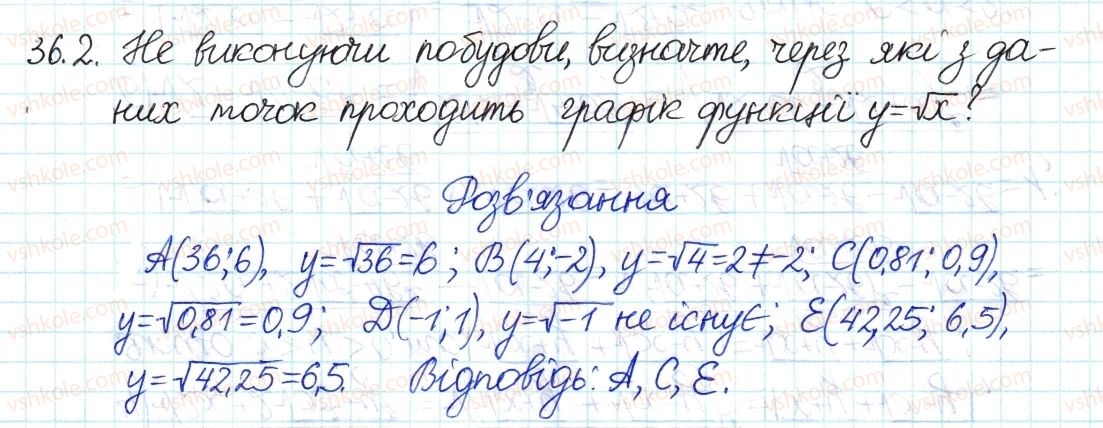 36.2. Не виконуючи побудови, визначте, через які з да-
них точок проходить графік функції y=√x?
Розв'язання
A(36; 6), y=√36=6; B(4; -2), y=√4=2≠-2; C(0,81; 0,9),
y=√0,81=0,9; D(-1; 1), y=√-1 не існує; E(42,25; 6,5),
y=√42,25=6,5. Відповідь: A, C, E.